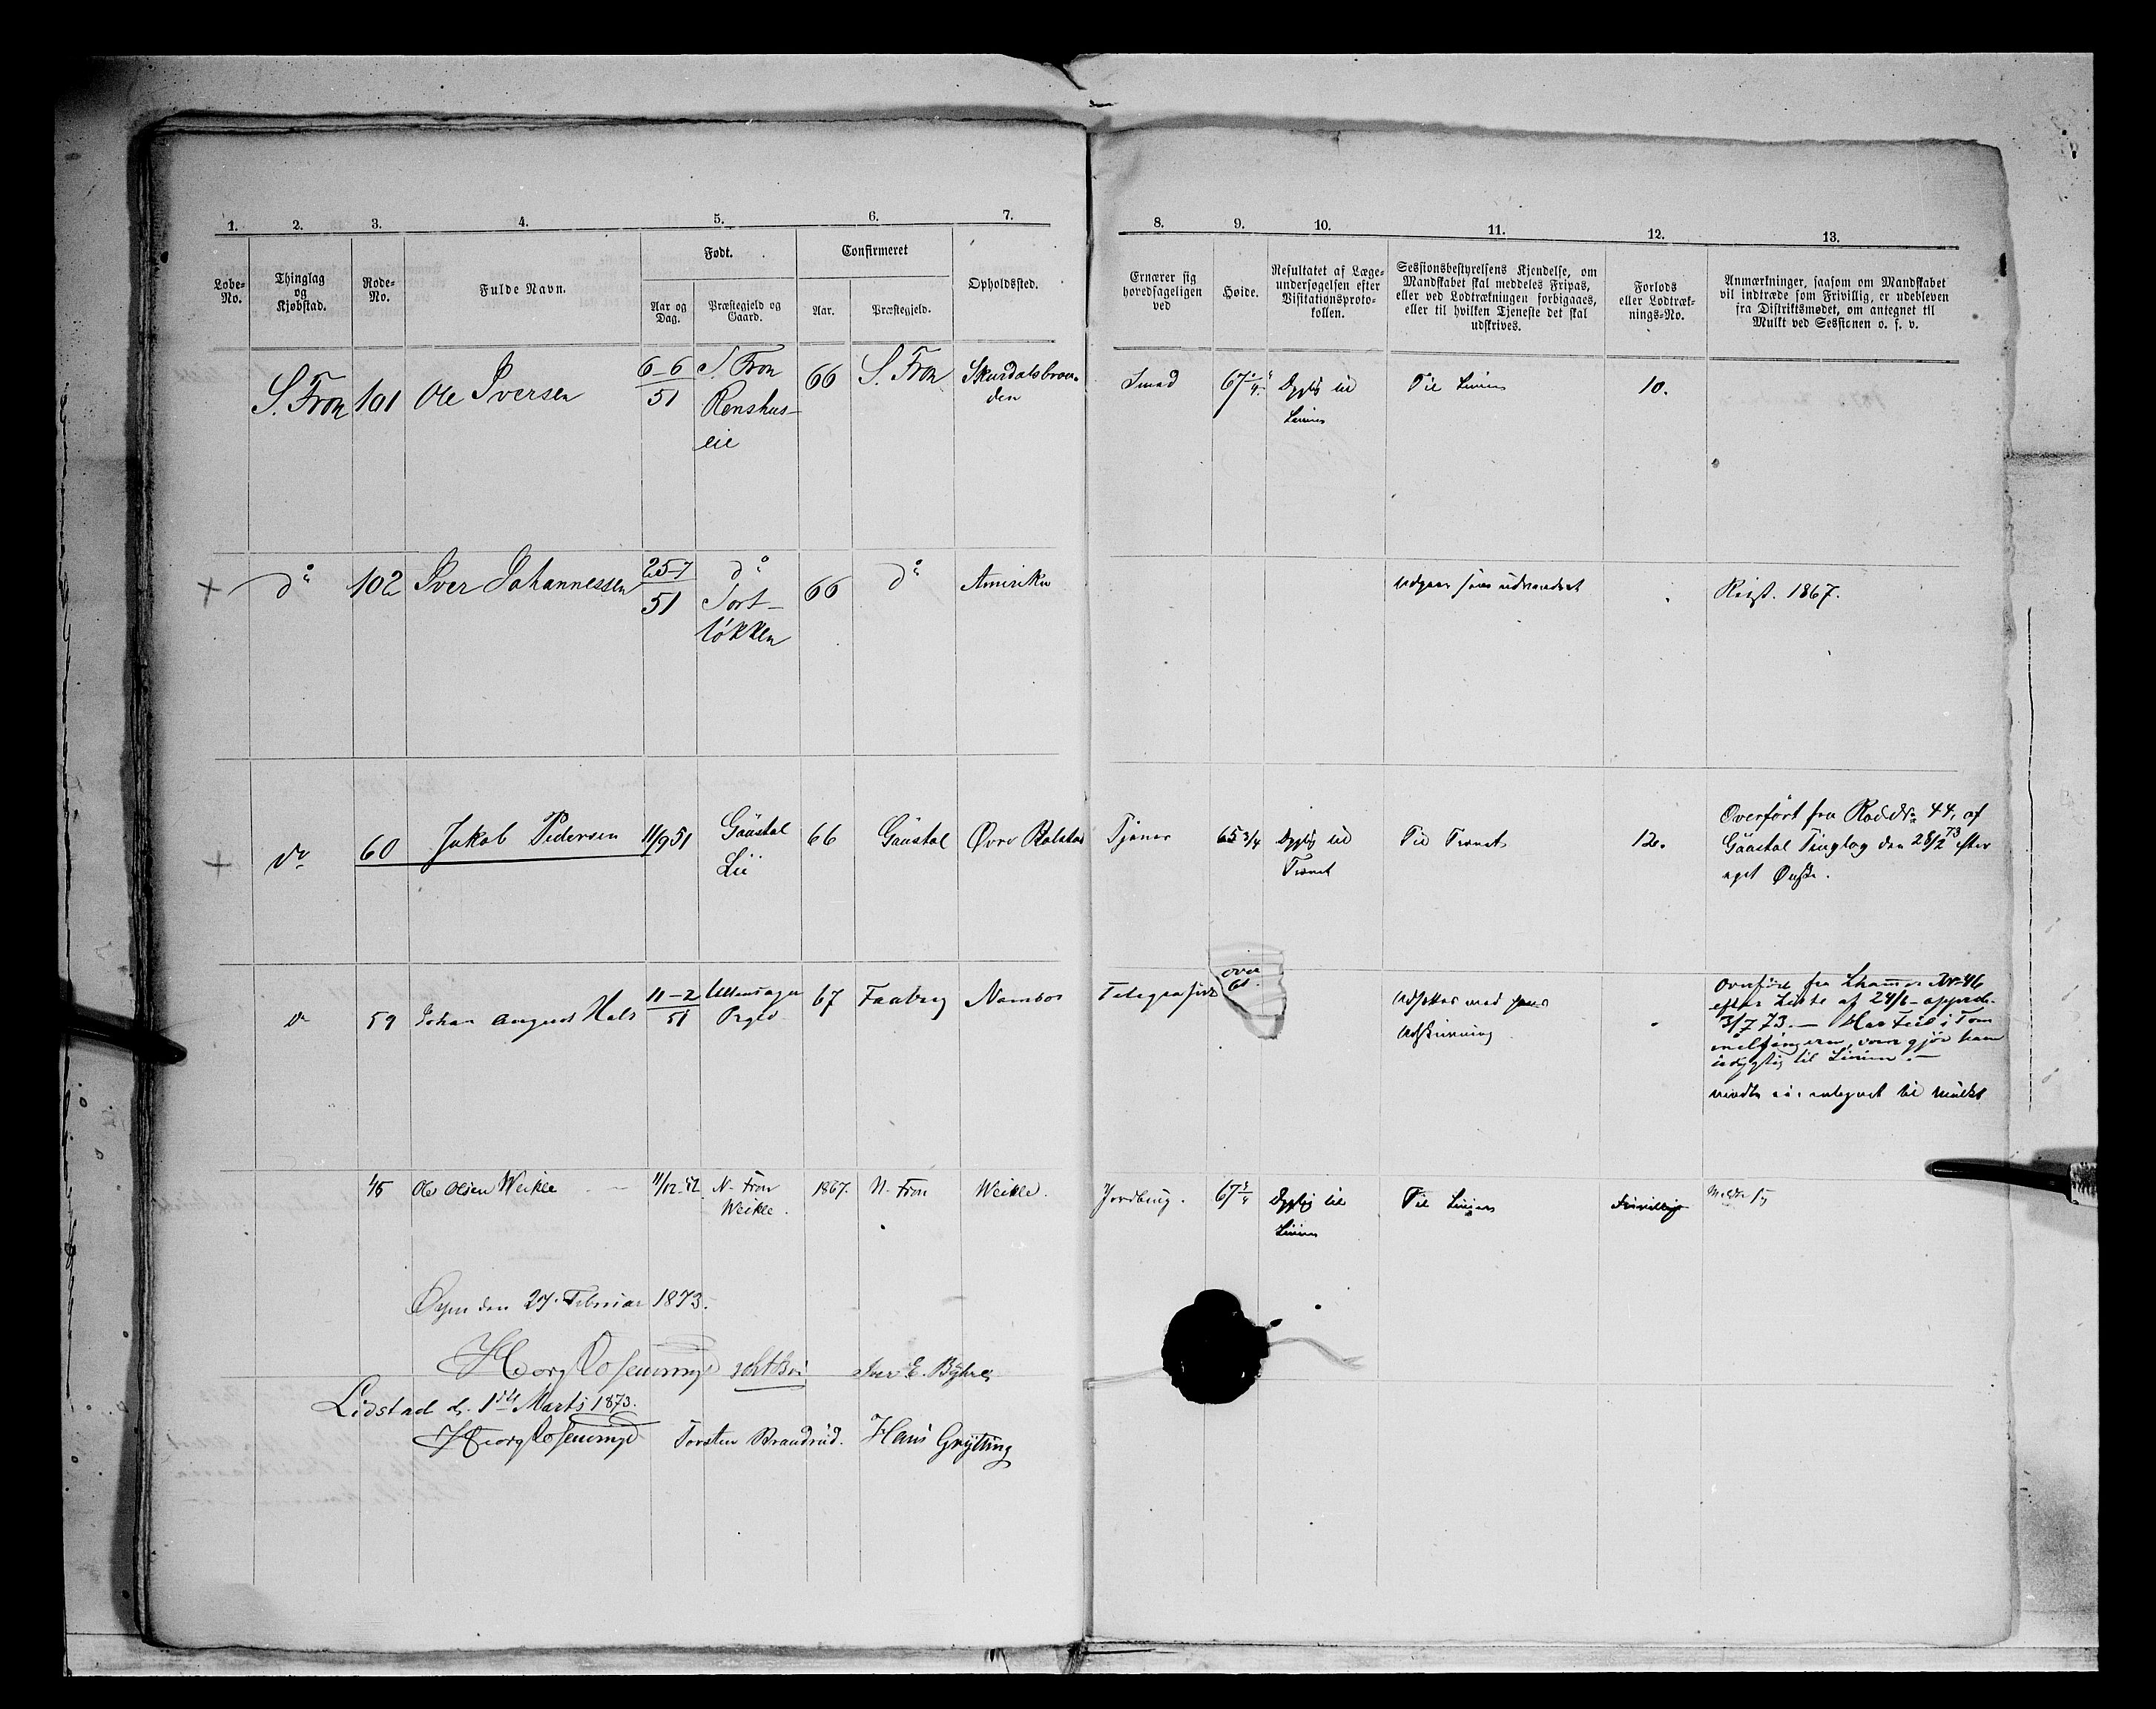 1. 2. 3. 4. 5. 6. 7. 8. 9. 10. 11. 12. 13.
Løbe-No.
Thinglag og Kjøbstad.
Rode-No.
Fulde Navn.
Født.
Aar og Dag.
Præstegjeld og Gaard.
Confirmeret
Aar.
Præstegjeld.
Opholdssted.
Ernærer sig hovedsageligen ved
Høide.
Resultatet af Læge-
undersøgelsen efter
Visitationsproto-
kollen.
Sessionsbestyrelsens Kjendelse, om
Mandskabet skal meddeles Fripas,
eller ved Lodtrækningen forbigaaes,
eller til hvilken Tjeneste det skal
udskrives.
Forlods
eller Lodtræk-
nings-No.
Anmærkninger, saasom om Mandskabet
vil indtræde som Frivillig, er udebleven
fra Distriktsmødet, om antegnet til
Mulkt ved Sessionen o. s. v.
S. Fron 101 Ole Iversen 6-6 51 S. Fron Renshus-eie 66 S. Fron Skurdalsbraa-den Smed 67 1/4" Dygtig til Linien Til Linien 10.
+ do 102 Iver Johannessen 25-7 51 do Tort-løkken 66 do Amerika Udgaar som udvandret Reist. 1867.
+ do 60 Jakob Pedersen 11/9 51 Gausdal Lie 66 Gausdal Øvre Bolstad Tjener 65 3/4 Dygtig til Trænet Til Trænet 12.
Overført fra Rode No 44, af
Gausdal Tinglag den 28/2 73 efter
eget Ønske.
do 59 Johan August Hals 11-2 51 Ullensager Prgld 67 Faaberg Namsos Telegrafist over 61. Udsættes med
Udskrivning
Overført fra Lhammer No 46
efter Liste af 24/6
3/7 73. — Har Feil i Tom
melfingeren, som gjør ham
udygtig til Linien. —
antegnet til Mulkt
45 Ole Olsen Weikle 11/12 52 N. Fron Weikle. 1867. N. Fron Weikle. Jordbrug. 67 3/4 Dygtig til Linien Til Linien Frivillig
Øyen den 27. Februar 1873.
Iver E. Byhre
Lidstad d. 1ste Marts 1873.
Torsten Brandrud. Hans Grytting